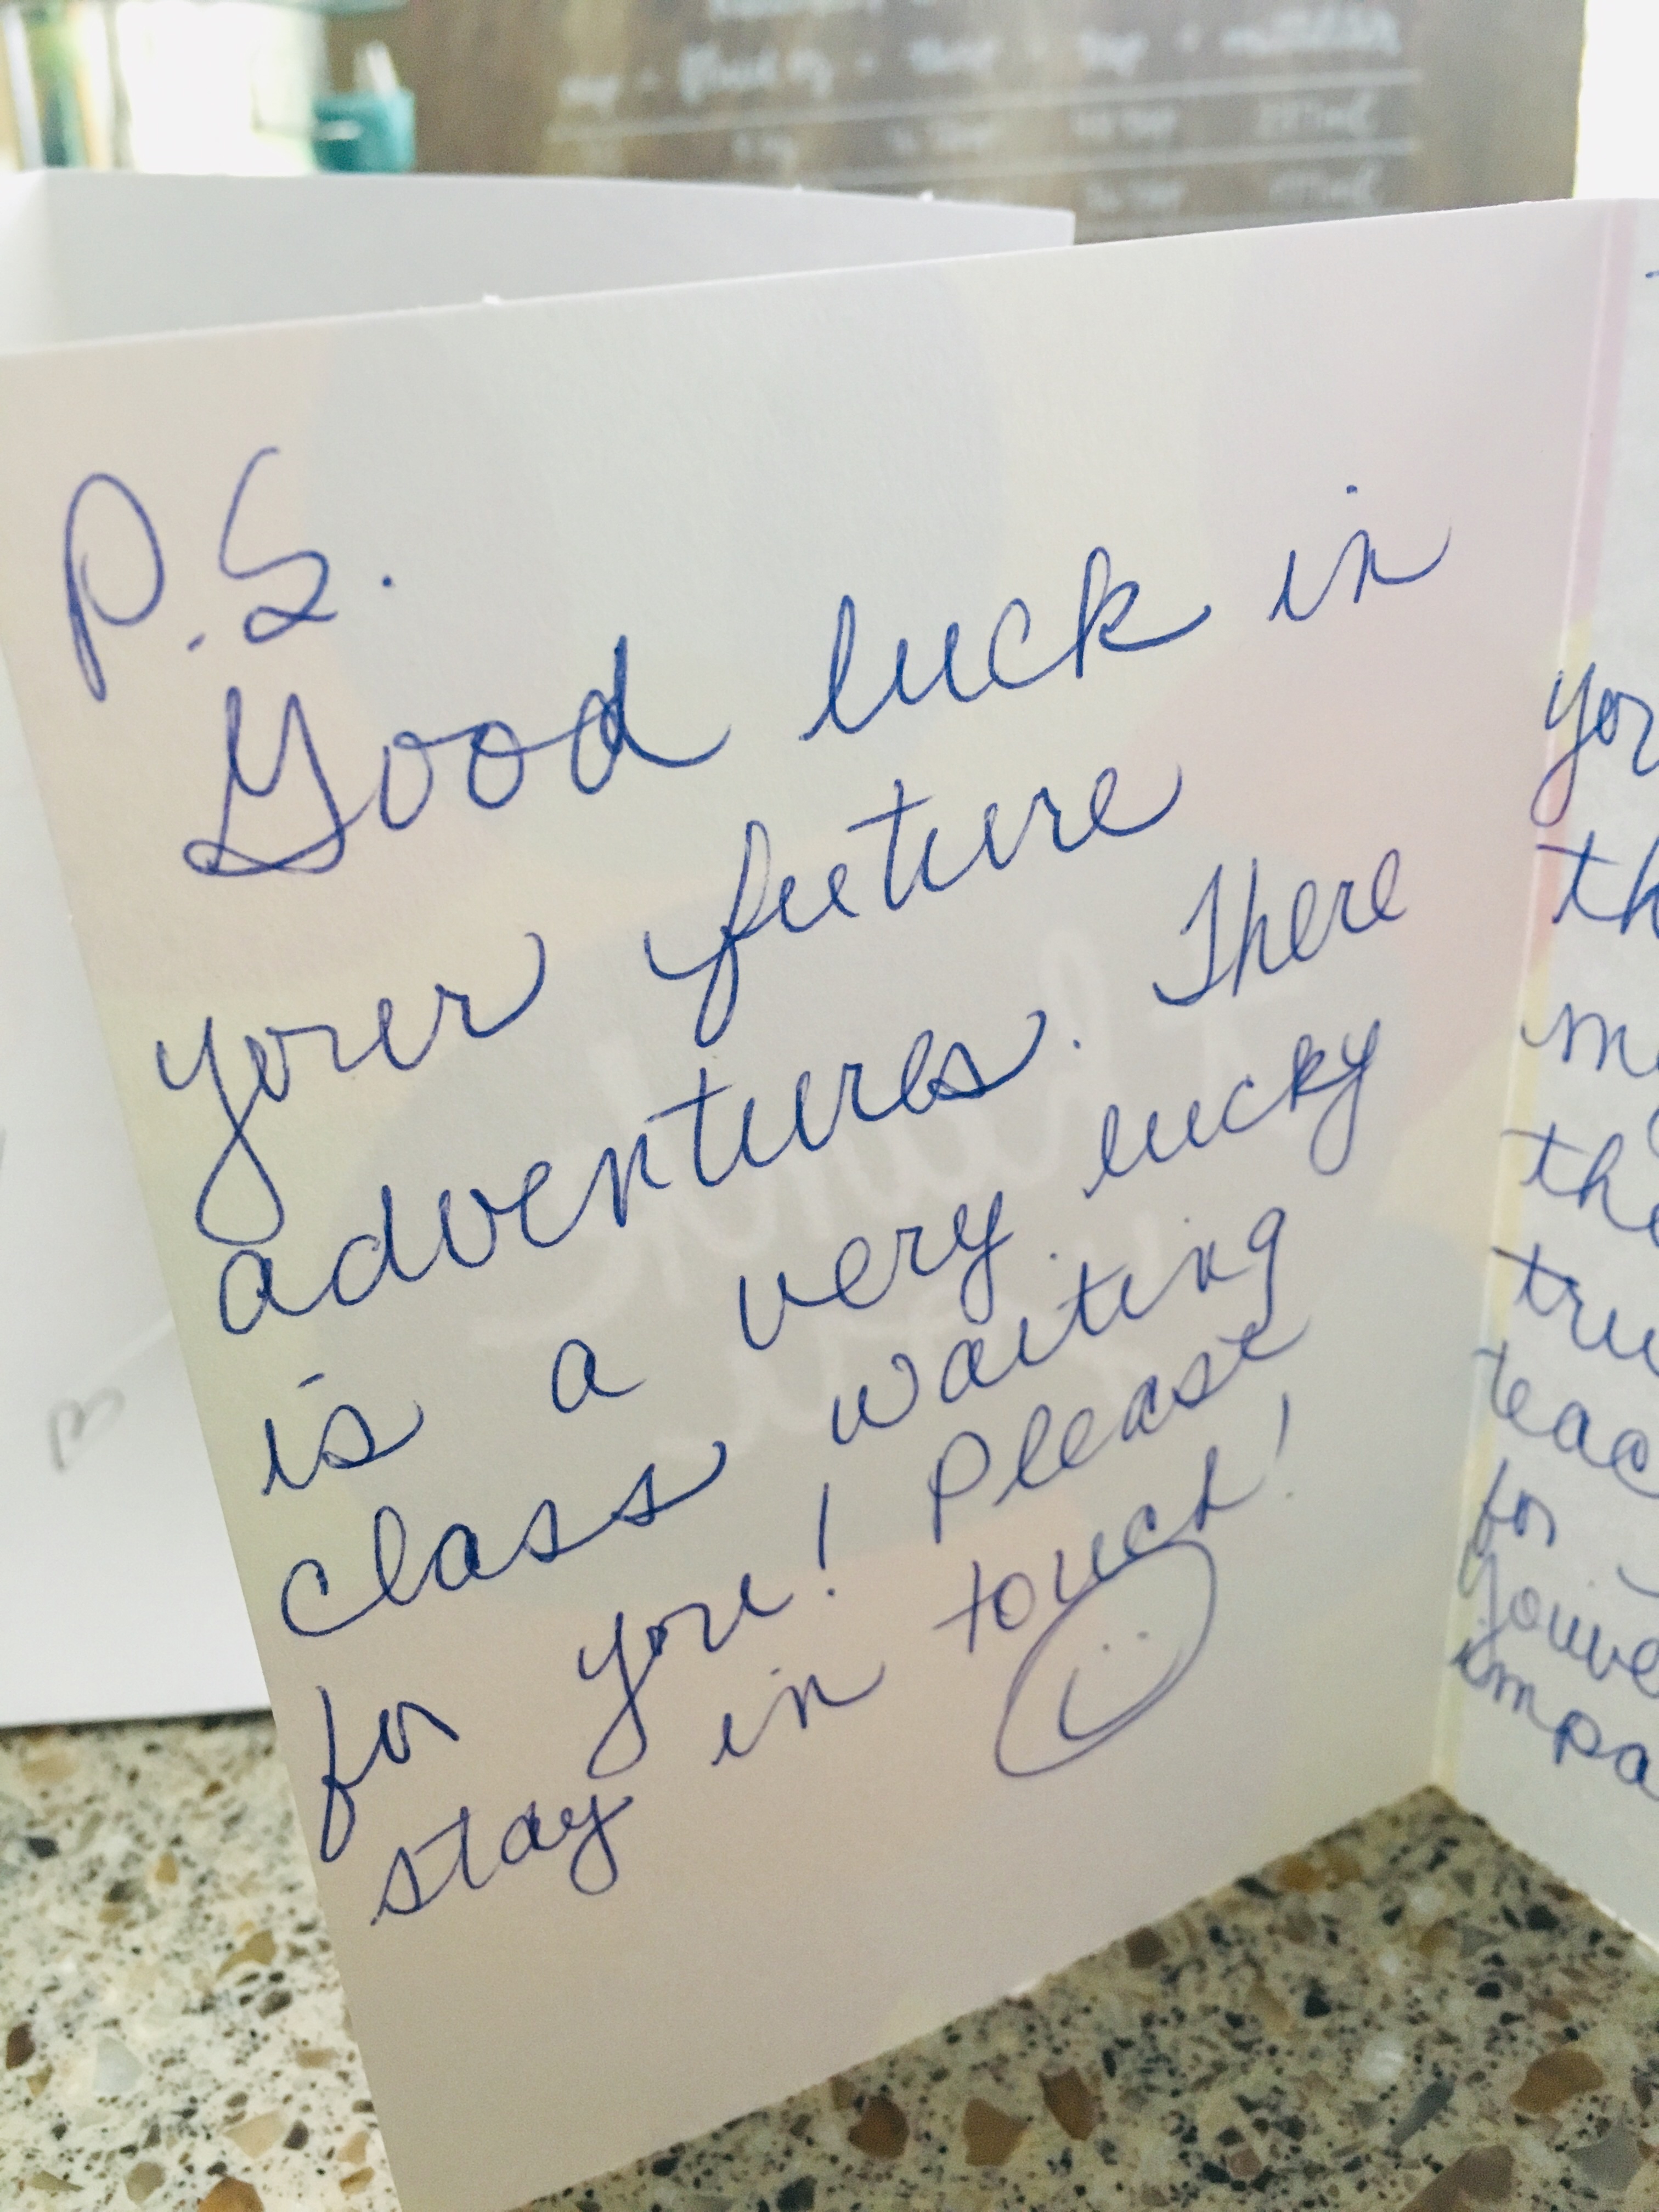 P.S.
Good luck in
your future
adventures. There
is a very lucky
class waiting
for you! Please
stay in touch!
you
th
my
the
tru
teac
for
you've
impa